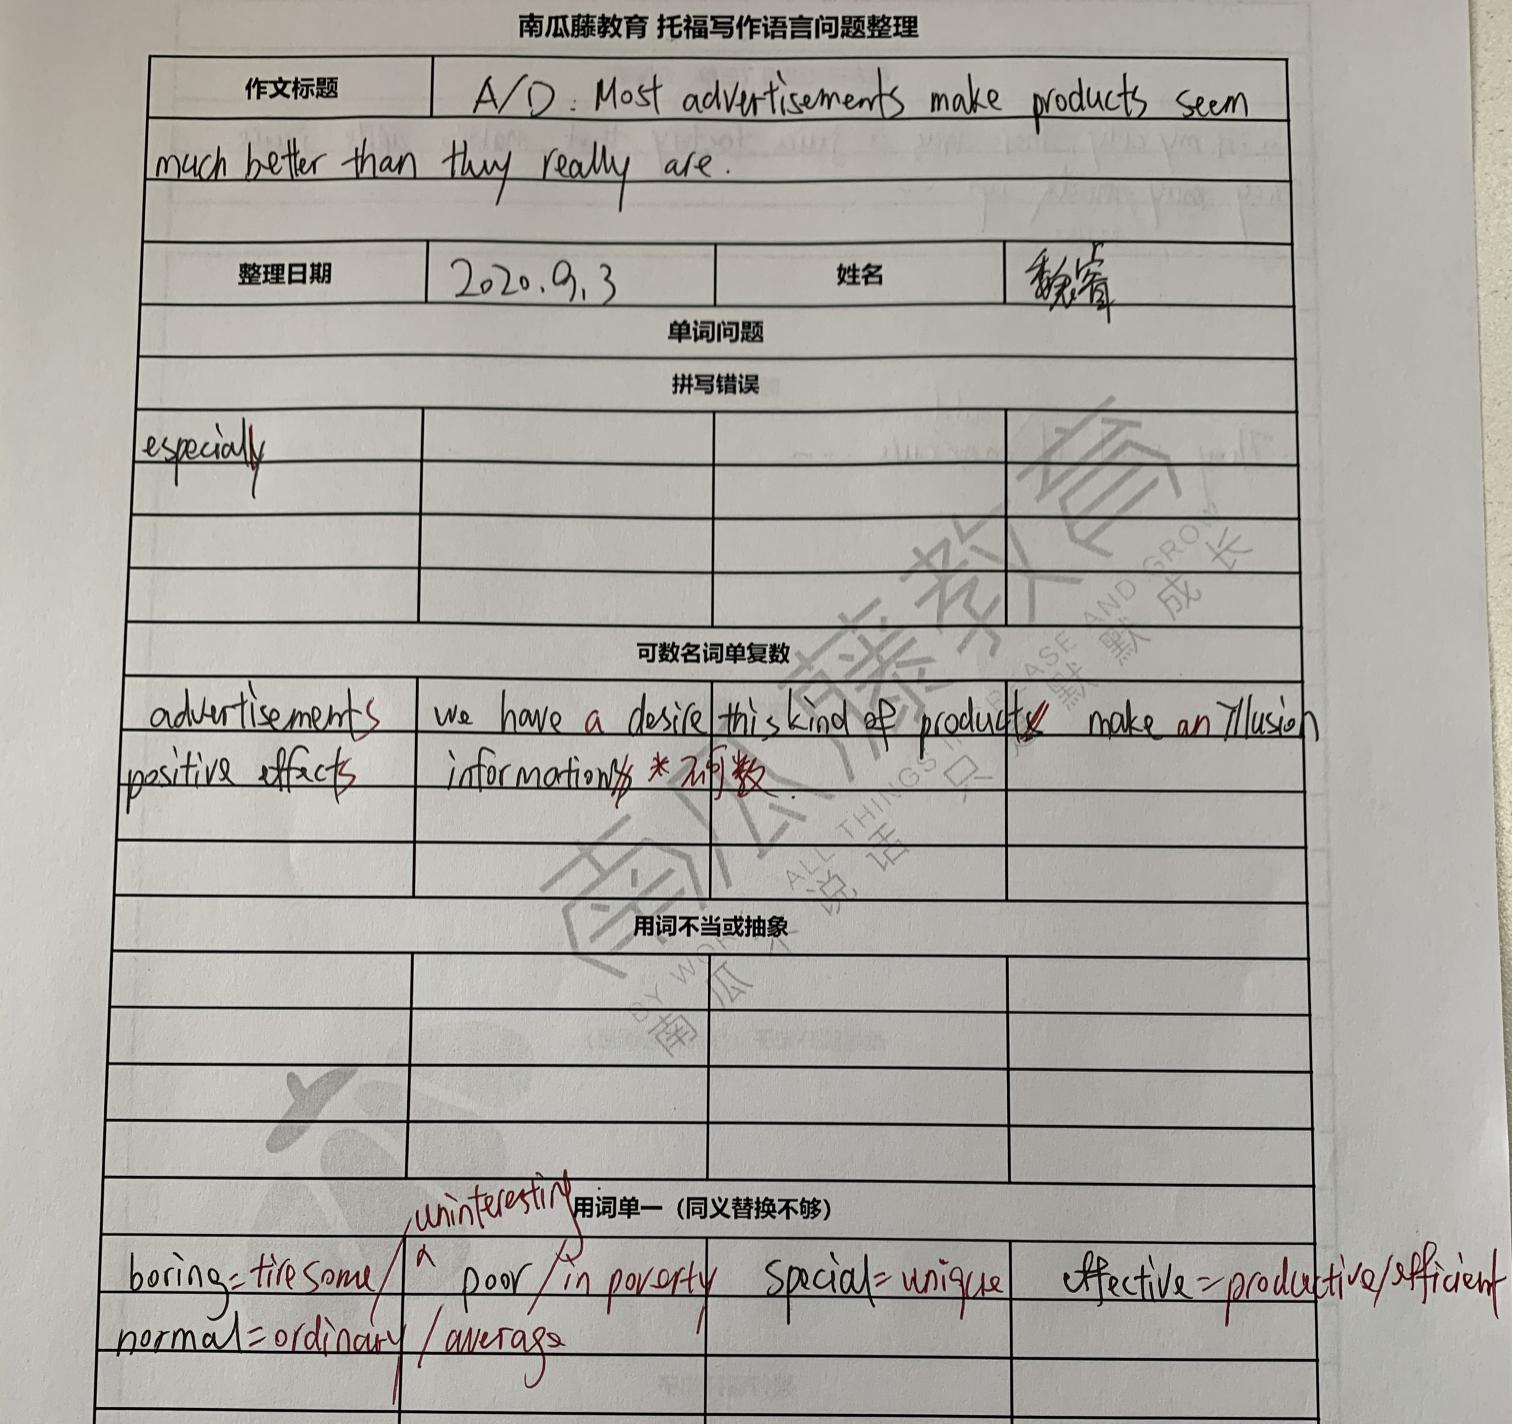 南瓜藤教育 托福写作语言问题整理
作文标题 A/D: Most advertisements make products seem
much better than they really are.
整理日期 2020.9.3 姓名 魏睿
单词问题
拼写错误
especially
可数名词单复数
advertisements we have a desire this kind of products make an illusion
positive effects informations * 不可数.
用词不当或抽象
用词单一（同义替换不够）
uninteresting
boring=tiresome/ poor/in poverty special=unique effective=productive/efficient
normal=ordinary/average
南瓜藤教育
BY WORDS ALL THINGS INCREASE AND GROW
南瓜不说话 只是默默成长